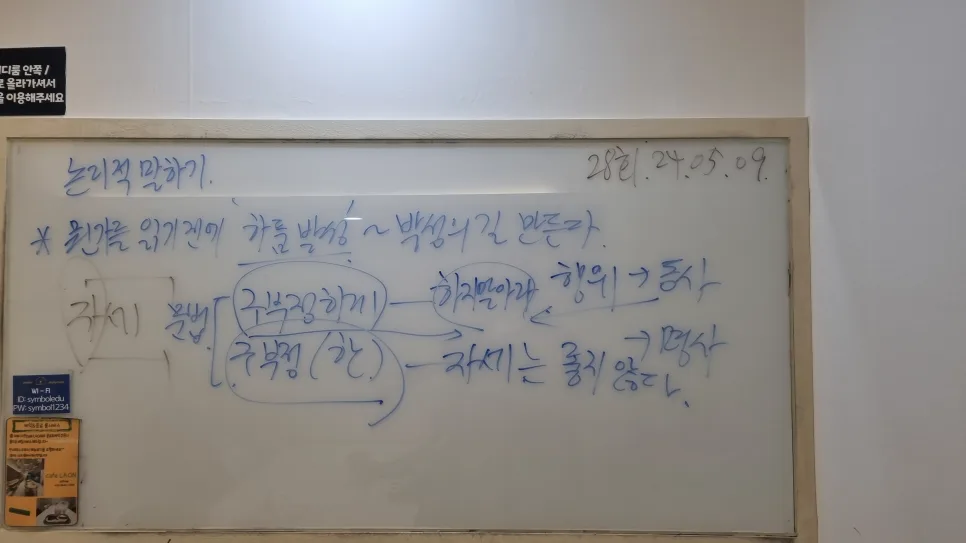 디룸 안쪽 /
로 올라가셔서
을 이용해주세요
논리적 말하기.
28회. 24. 05. 09.
* 원가를 읽기전에 '하품 발성' ~ 발성의 길 만든다.
자세 문법 구부정하게 — 하지말아라 행위 → 동사
구부정(한) — 자세는 좋지 않다. → 명사
Wi-Fi
ID: symboledu
PW: symbol1234
cafe LAON